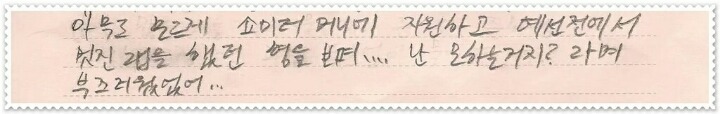 아무도 모르게 쇼미더 머니에 지원하고 예선전에서
멋진 랩을 했던 형을 보며.... 난 모하는거지? 라며
부끄러웠었어...